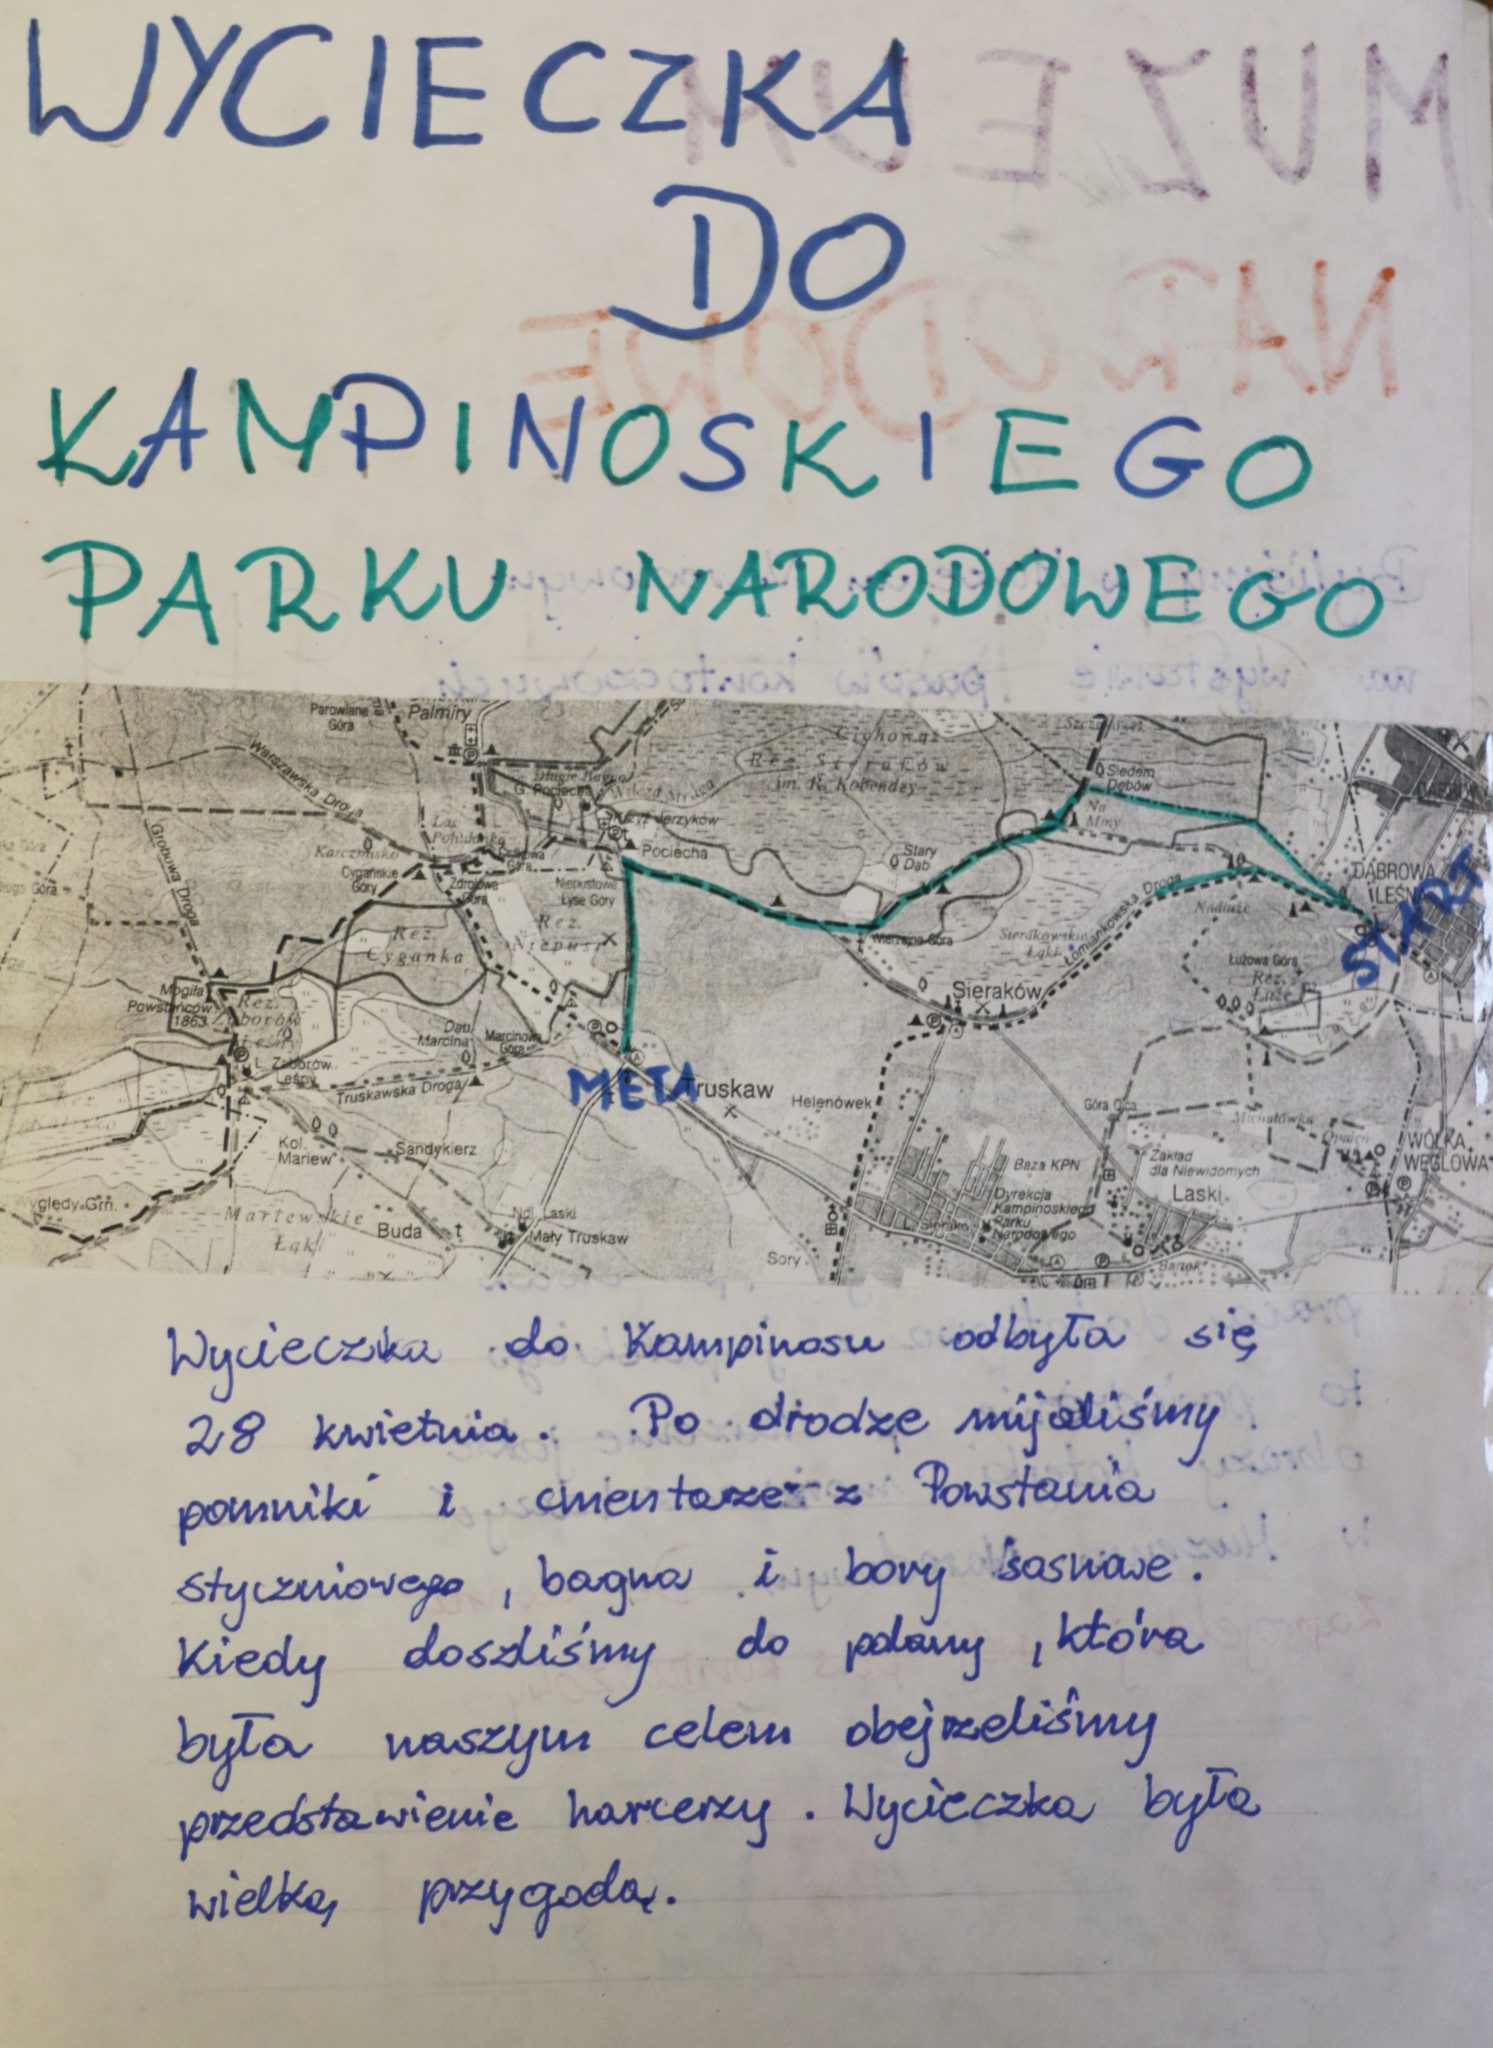 WYCIECZKA
DO
KAMPINOSKIEGO
PARKU NARODOWEGO
Parowiana Góra
Palmiry
Warszawska Droga
Grobowa Droga
G. Pociecha
Wilcza Struga
Cichowąż
Rez. Sieraków
im. R. Kobendzy
Siedem Dębów
Na Miny
Karczmisko
Cygańskie Góry
Zdrojowa Góra
Pociecha
Niepustowe Łyse Góry
Stary Dąb
DĄBROWA LEŚN
START
Rez. Cyganka
Rez.
Wierzejna Góra
Sierakowskie Łąki
Łomiankowska Droga
Nadłuże
Łużowa Góra
Rez. Łuże
Mogiła Powstańców 1863
Rez. Zaborów Leśny
L. Zaborów Leśny
Dąb Marcina
Marcinowa Góra
Sieraków
Truskawska Droga
META
Truskaw
Helenówek
Góra Ojca
Michałówka
Opaleń
WÓLKA WĘGLOWA
Kol. Mariew
Sandykierz
Baza KPN
Zakład dla Niewidomych
Laski
Dyrekcja Kampinoskiego Parku Narodowego
Martewskie Łąki
Buda
Ndl. Laski
Mały Truskaw
L. Sieraków
Sory
Wycieczka do Kampinosu odbyła się
28 kwietnia. Po drodze mijaliśmy
pomniki i cmentarze z Powstania
styczniowego, bagna i bory sosnowe.
Kiedy doszliśmy do polany, która
była naszym celem obejrzeliśmy
przedstawienie harcerzy. Wycieczka była
wielką przygodą.